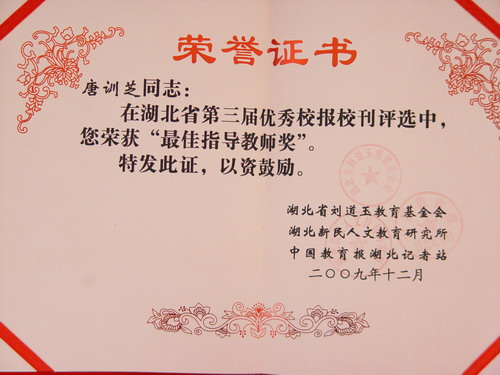 荣誉证书
唐训芝同志：
在湖北省第三届优秀校报校刊评选中，
您荣获“最佳指导教师奖”。
特发此证，以资鼓励。
湖北省刘道玉教育基金会
湖北新民人文教育研究所
中国教育报湖北记者站
二〇〇九年十二月